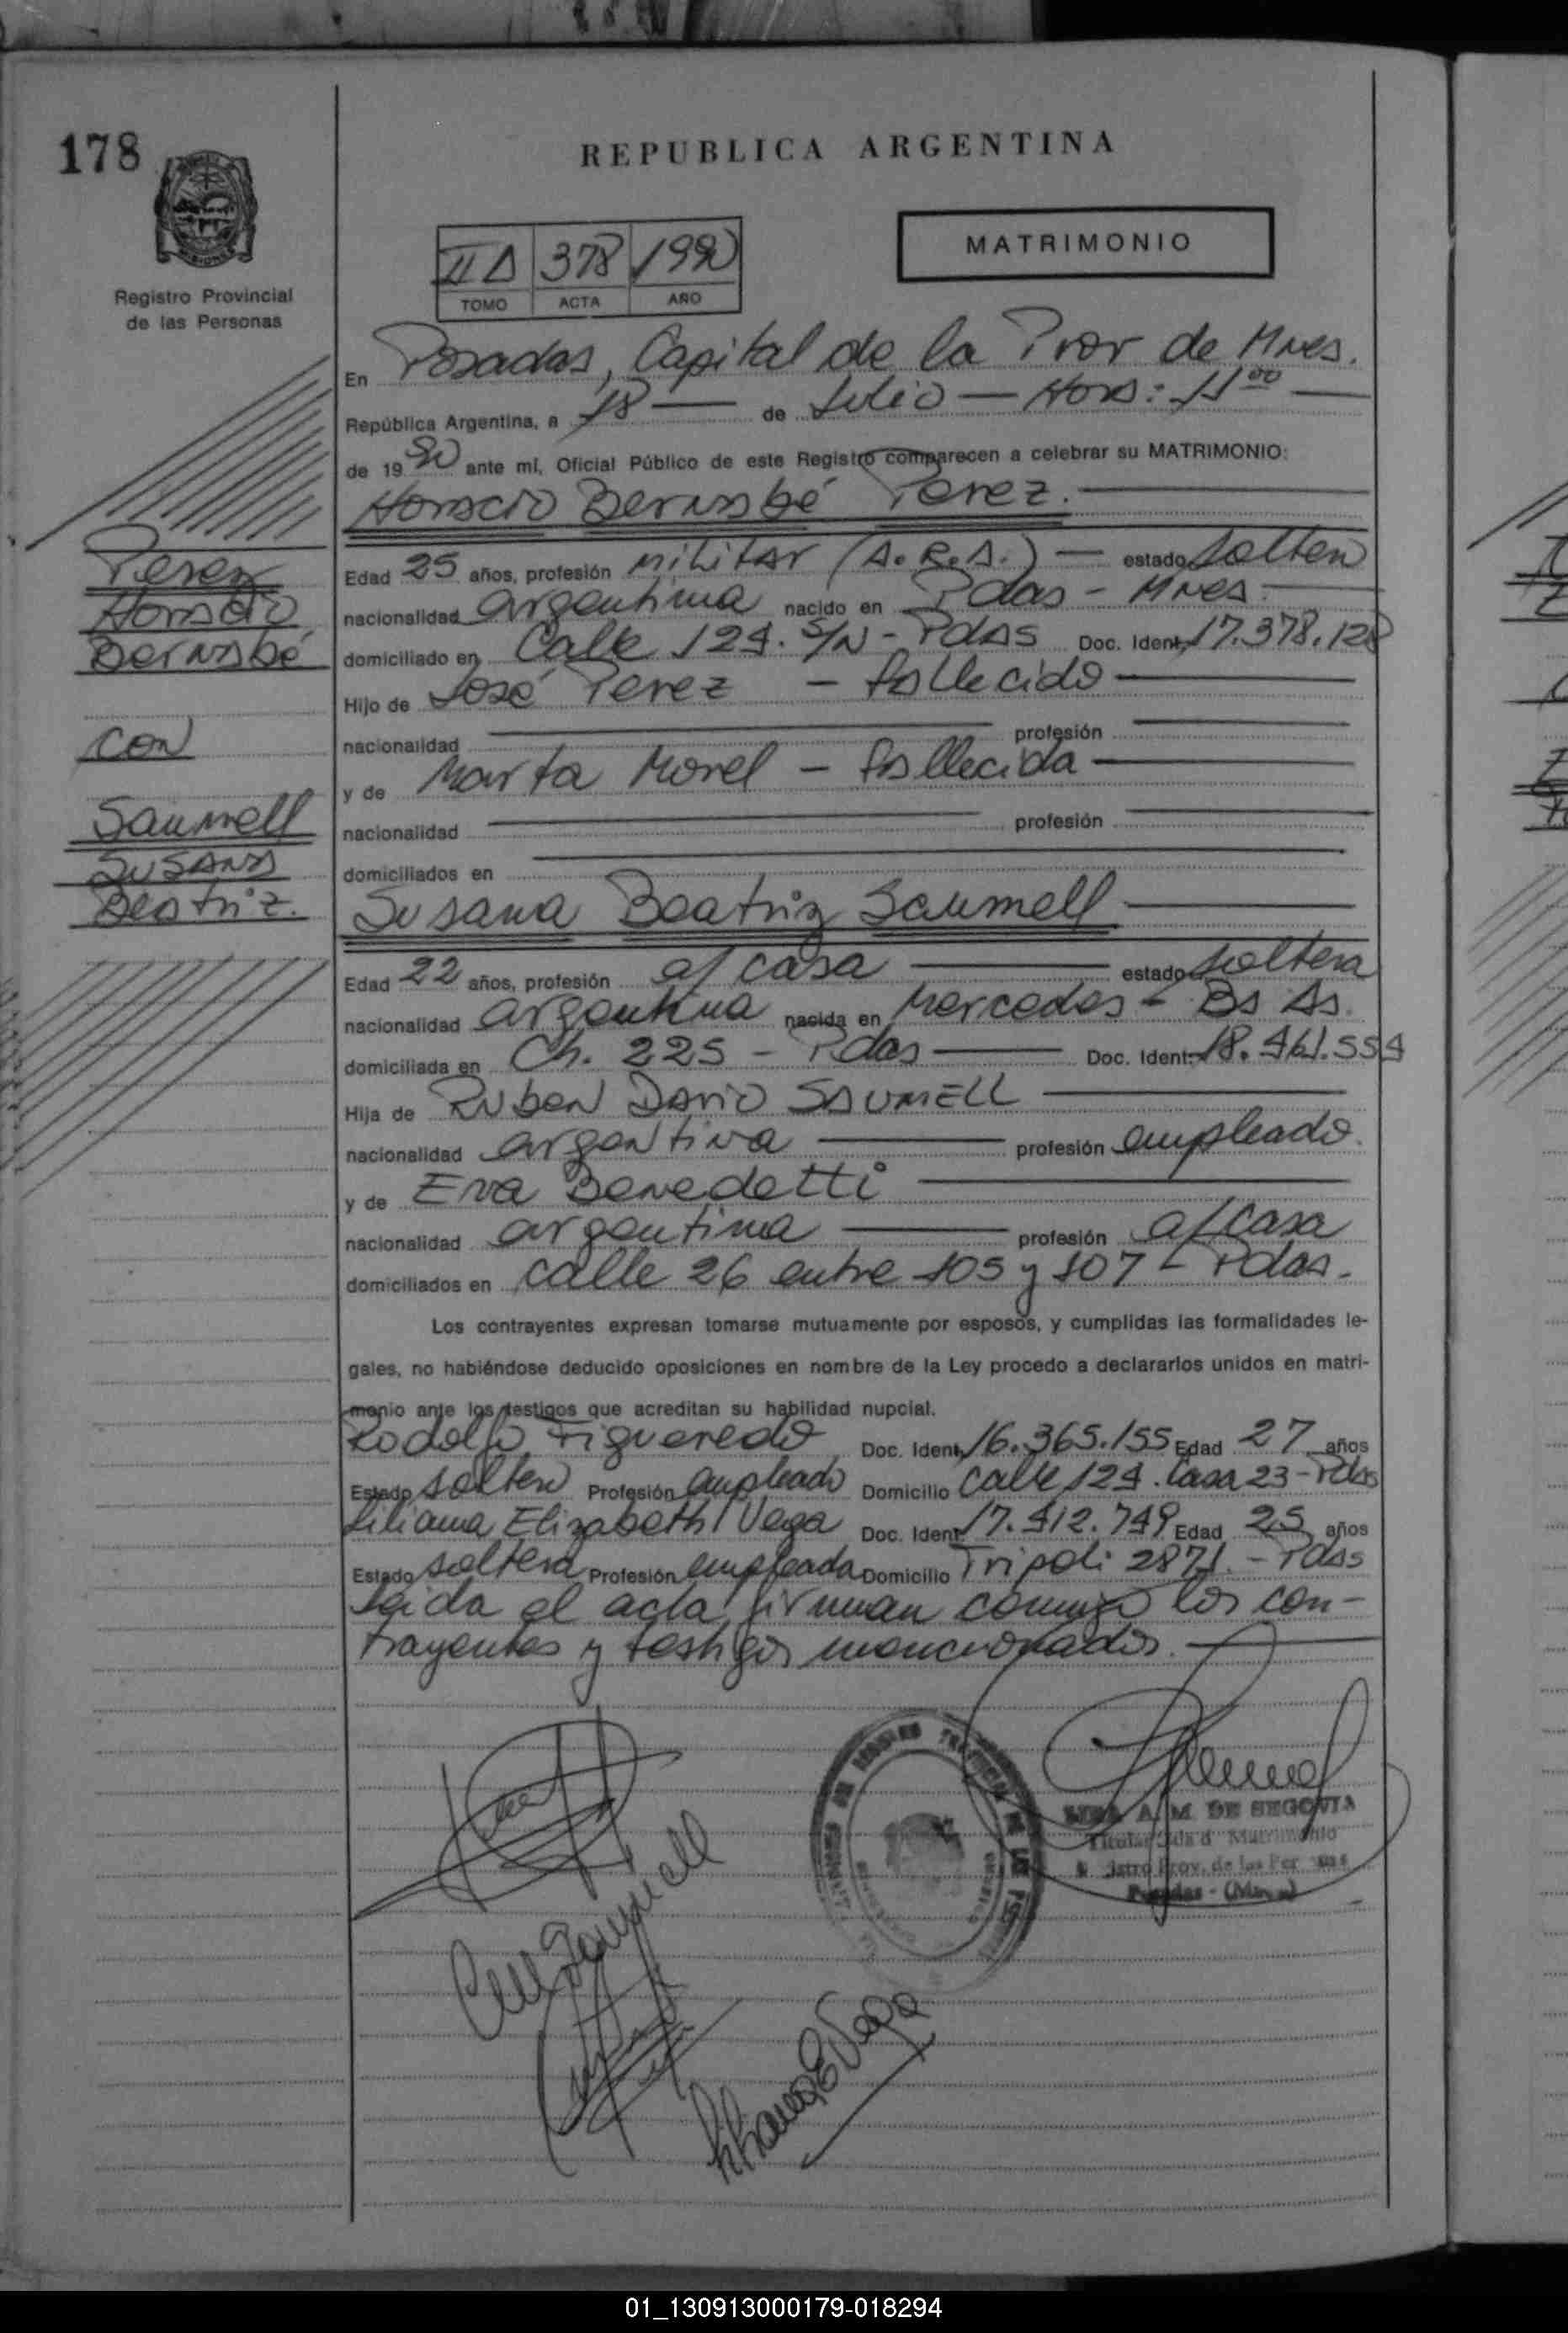 178
REPUBLICA ARGENTINA
MISIONES
Registro Provincial
de las Personas
II A 378 1990
TOMO ACTA AÑO
MATRIMONIO
En Posadas, Capital de la Prov de Mnes.
República Argentina, a 18 — de Julio — Hora: 11 00 —
de 19 90 ante mí, Oficial Público de este Registro comparecen a celebrar su MATRIMONIO:
Horacio Bernabé Perez.
Edad 25 años, profesión militar (A.R.A.) — estado soltero
nacionalidad argentina nacido en Pdas - Mnes.
domiciliado en Calle 124. S/N - Pdas Doc. Ident. 17.378.128
Hijo de José Perez - fallecido
nacionalidad profesión
y de Marta Morel - fallecida
nacionalidad profesión
domiciliados en
Perez
Horacio
Bernabé
con
Saumell
Susana
Beatriz.
Susana Beatriz Saumell
Edad 22 años, profesión a/ casa estado soltera
nacionalidad argentina nacida en Mercedes - Bs As.
domiciliada en Ch. 225 - Pdas Doc. Ident. 18.461.554
Hija de Ruben Dario Saumell
nacionalidad argentina profesión empleado.
y de Eva Benedetti
nacionalidad argentina profesión a/casa
domiciliados en calle 26 entre 105 y 107 - Pdas.
Los contrayentes expresan tomarse mutuamente por esposos, y cumplidas las formalidades le-
gales, no habiéndose deducido oposiciones en nombre de la Ley procedo a declararlos unidos en matri-
monio ante los testigos que acreditan su habilidad nupcial.
Rodolfo Figueredo Doc. Ident. 16.365.155 Edad 27 años
Estado soltero Profesión empleado Domicilio Calle 124. Casa 23 - Pdas
Liliana Elizabeth Vega Doc. Ident. 17.412.749 Edad 25 años
Estado soltera Profesión empleada Domicilio Tripoli 2871. - Pdas
Leida el acta firman conmigo los con-
trayentes y testigos mencionados.
A. M. DE SEGOVIA
Titular Sala d Matrimonio
Prov. de las Per
Posadas - (Mnes)
Saumell
Liliana E Vega
01_130913000179-018294